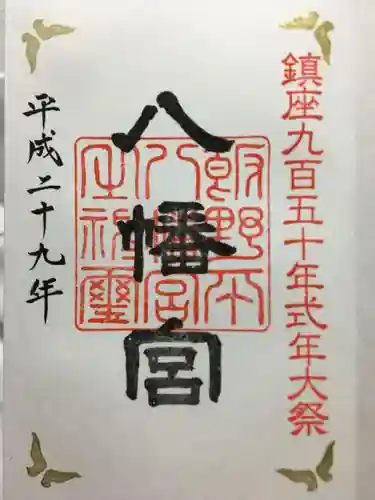 鎮座九百五十年式年大祭
八幡宮
飯野平
八幡宮
神璽
平成二十九年